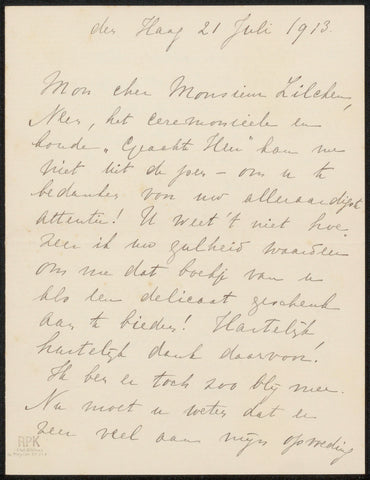 den Haag 21 Juli 1913.
Mon cher Monsieur Zilcken,
Neen, het ceremonieele en
koude „Geachte Heer" kan me
niet uit de pen – om u te
bedanken voor uw alleraardigst
attentie! U weet 't niet hoe
zeer ik uw gulheid waardeer
om me dat boekje van u
als een delicaat geschenk
aan te bieden! Hartelijk
hartelijk dank daarvoor!
Ik ben er toch zoo blij mee.
Nu moet u weten dat er
zeer veel aan mijn opvoeding
RPK